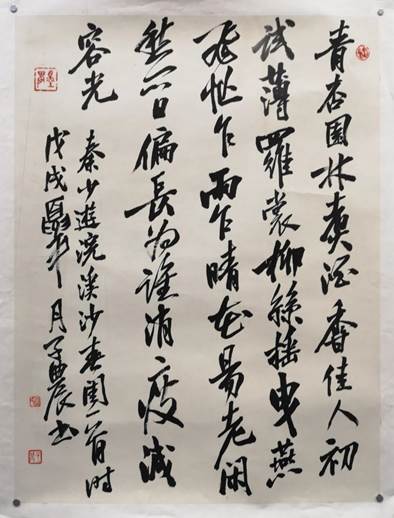 青杏園林煮酒香佳人初
試薄羅裳柳絲搖曳燕
飛忙乍雨乍晴花易老闲
愁日偏長为誰消瘦減
容光
秦少遊浣溪沙春闺一首时
戊戌月辰书